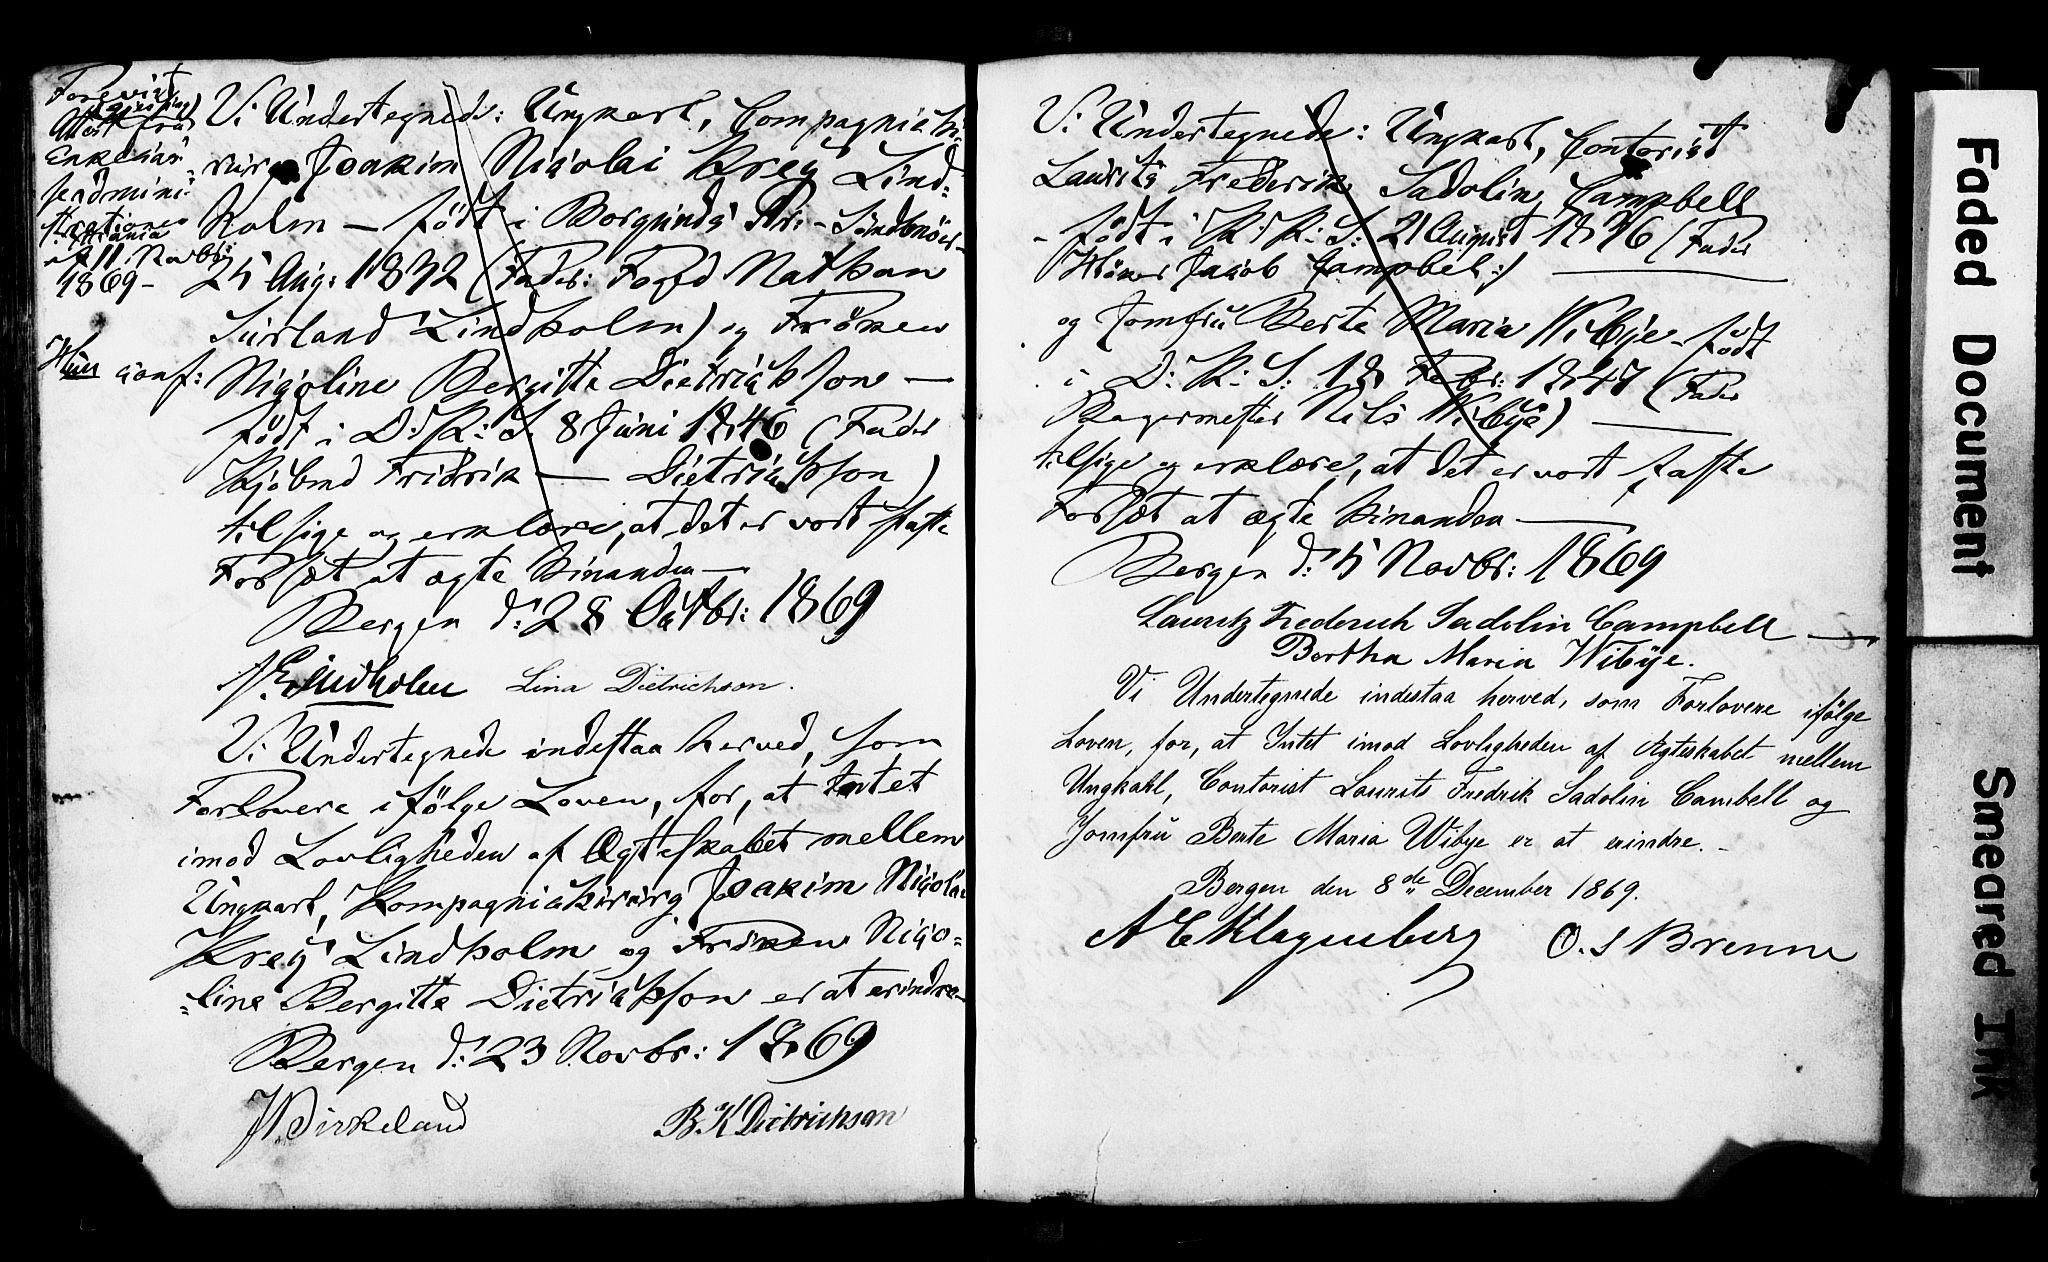 Forevist
Attest fra
Enkekas-
seadmini-
stration
i Xtiania
af 11 Novbr
1869 –
Hun conf:
Vi Undertegnede: Ungkarl, Compagniechi-
rurg Joakim Nicolai Krey Lind-
holm – födt i Borgunds Pr: – Söndmör –
25 Aug: 1832 (Fader: Foged Nathan
Lindholm) og Fröken
Nicoline Bergitte Dietrichson –
födt i D: K: S. 8 Juni 1846 (Fader
Kjöbmd Fridrik – Dietrichson)
tilsige og erklære, at det er vort faste
Forsæt at ægte hinanden –
Bergen d: 28 Octbr: 1869
Lindholm Lina Dietrichson.
Vi Undertegnede indestaa herved, som
Forlovere ifölge Loven, for, at Intet
imod Lovligheden af Ægteskabet mellem
Ungkarl, Kompagniechirurg Joakim Nicolai
Krey Lindholm og Fröken Nico-
line Bergitte Dietrichson er at erindre –
Bergen d: 23 Novbr: 1869
Birkeland B. K Dietrichson
Vi Undertegnede: Ungkarl, Contorist
Laurits Frederik Sadolin Campbell
– födt i K: K: S: 21 August 1836 (Fader
Jacob Campbel:) –
og Jomfru Berte Maria Wibye – födt
i D: K: S: 18 Febr: 1847 (Fader
Bagermester Nils Wibye) –
tilsige og erklære, at det er vort faste
Forsæt at ægte hinanden –
Bergen d: 5 Novbr: 1869
Lauritz Frederich Sadolin Campbell –
Bertha Maria Wibye.
Vi Undertegnede indestaa herved, som Forlovere ifölge
Loven, for, at Intet imod Lovligheden af Ægteskabet mellem
Ungkarl, Contorist Laurits Fredrik Sadolin Cambell og
Jomfru Bente Maria Wibye er at erindre. –
Bergen den 8de December 1869.
A E Klagenberg O. S Brenne
Faded Document
Smeared Ink